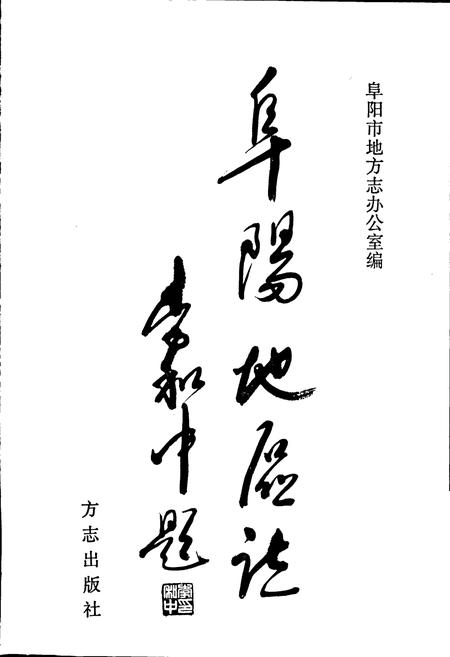 阜阳市地方志办公室编
阜陽地區誌
李和中题
方志出版社